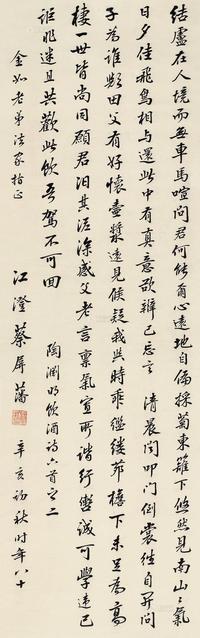 結廬在人境而無車馬喧問君何能爾心遠地自偏採菊東籬下悠然見南山々氣
日夕佳飛鳥相與還此中有真意欲辨已忘言 清晨聞叩門倒裳往自開問
子為誰歟田父有好懷壺漿遠見候疑我與時乖繿縷茅檐下未足為高
棲一世皆尚同願君汩其泥深感父老言稟氣寡所諧紆轡誠可學違己
詎非迷且共歡此飲吾駕不可回 陶淵明飲酒詩六首之二
金如老弟法家指正
江澄蔡屏藩
辛亥初秋时年八十